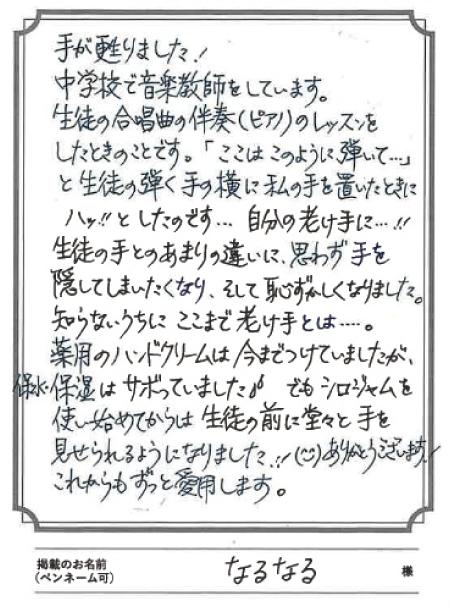 手が甦りました!
中学校で音楽教師をしています。
生徒の合唱曲の伴奏(ピアノ)のレッスンを
したときのことです。「ここはこのように弾いて…」
と生徒の弾く手の横に私の手を置いたときに
ハッ!!としたのです… 自分の老け手に…!!
生徒の手とのあまりの違いに、思わず手を
隠してしまいたくなり、そして恥ずかしくなりました。
知らないうちにここまで老け手とは……。
薬用のハンドクリームは今までつけていましたが、
保水・保湿はサボっていました でもシロジャムを
使い始めてからは生徒の前に堂々と手を
見せられるようになりました!!(◡̈)ありがとうございます!
これからもずっと愛用します。
掲載のお名前
(ペンネーム可) なるなる 様